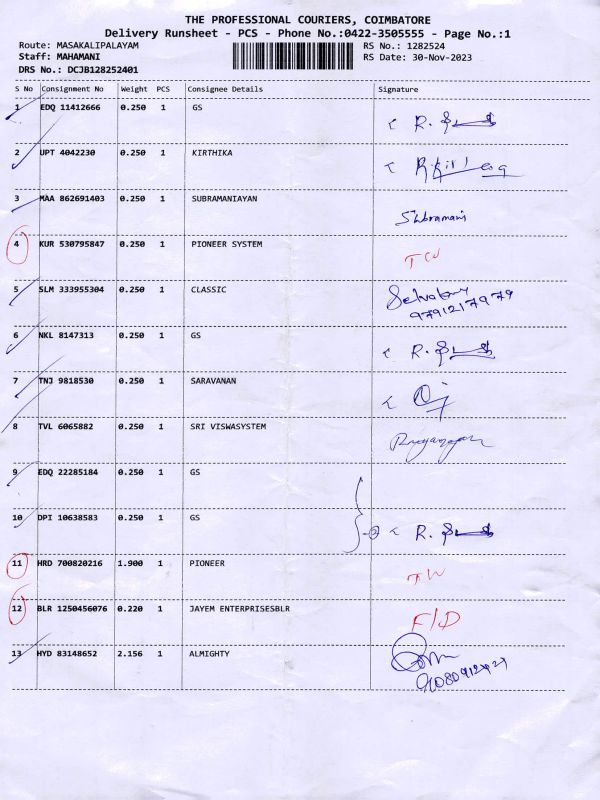 THE PROFESSIONAL COURIERS, COIMBATORE
Delivery Runsheet - PCS - Phone No.:0422-3505555 - Page No.:1
Route: MASAKALIPALAYAM RS No.: 1282524
Staff: MAHAMANI RS Date: 30-Nov-2023
DRS No.: DCJB128252401
S No Consignment No Weight PCS Consignee Details Signature
1 EDQ 11412666 0.250 1 GS R.
2 UPT 4042230 0.250 1 KIRTHIKA
3 MAA 862691403 0.250 1 SUBRAMANIAYAN Subramani
4 KUR 530795847 0.250 1 PIONEER SYSTEM TW
5 SLM 333955304 0.250 1 CLASSIC
9791217979
6 NKL 8147313 0.250 1 GS R.
7 TNJ 9818530 0.250 1 SARAVANAN
8 TVL 6065882 0.250 1 SRI VISWASYSTEM
9 EDQ 22285184 0.250 1 GS
10 DPI 10638583 0.250 1 GS R.
11 HRD 700820216 1.900 1 PIONEER TW
12 BLR 1250456076 0.220 1 JAYEM ENTERPRISESBLR F/D
13 HYD 83148652 2.156 1 ALMIGHTY